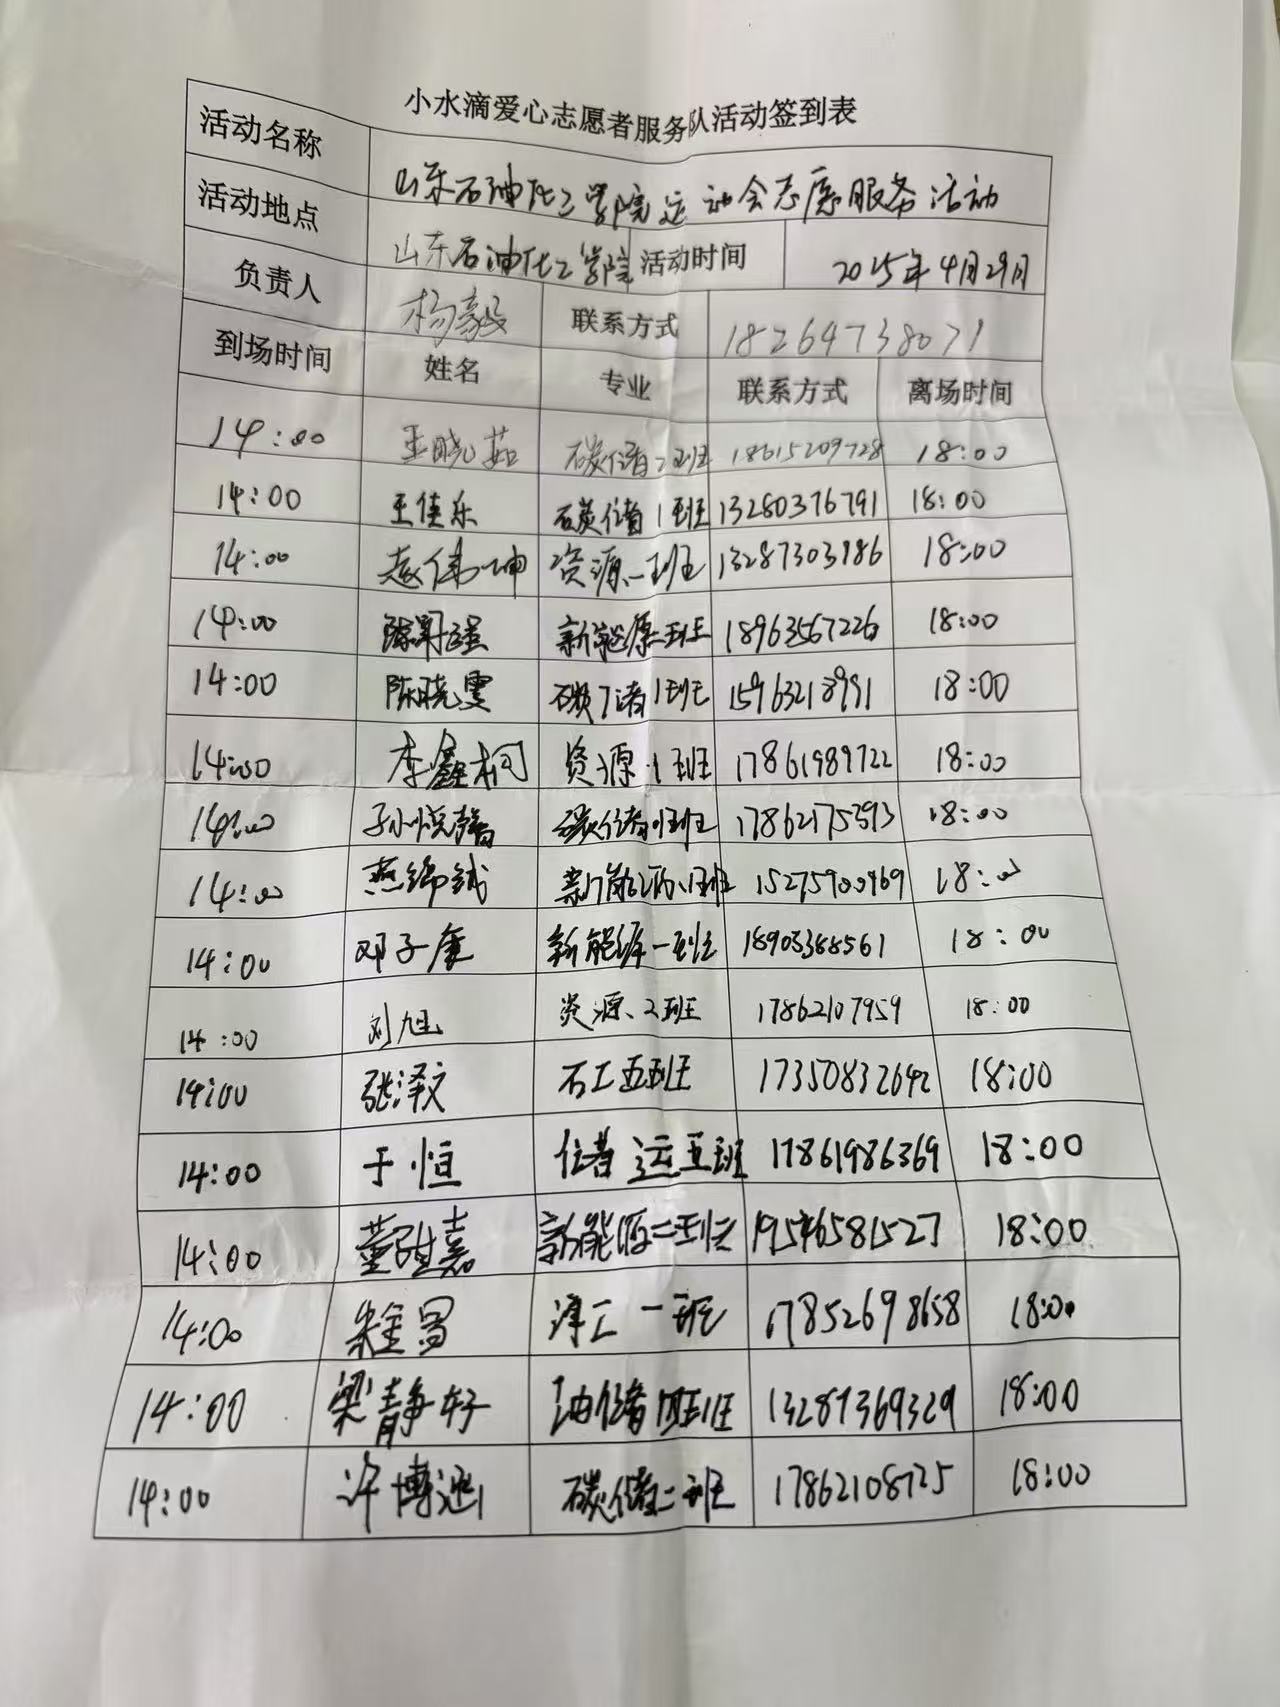 小水滴爱心志愿者服务队活动签到表
活动名称 山东石油化工学院运动会志愿服务活动
活动地点 山东石油化工学院 活动时间 2025年4月29日
负责人 杨毅 联系方式 18264738071
到场时间 姓名 专业 联系方式 离场时间
14:00 王晓茹 碳储2班 18615209728 18:00
14:00 王佳乐 碳储1班 13280376791 18:00
14:00 赵伟坤 资源一班 13287303986 18:00
14:00 新能源二班 18963567226 18:00
14:00 陈晓雯 碳储1班 15963218991 18:00
14:00 李鑫桐 资源1班 17861989722 18:00
14:00 孙悦馨 碳储1班 17862175393 18:00
14:00 燕锦钺 新能源1班 15275900969 18:00
14:00 邓子康 新能源一班 18903388561 18:00
14:00 刘旭 资源2班 17862107959 18:00
14:00 张泽文 石工五班 17350832642 18:00
14:00 于恒 储运五班 17861986369 18:00
14:00 董甜嘉 新能源二班 19546581527 18:00
14:00 一班 17852698658 18:00
14:00 梁静好 油储四班 13287369329 18:00
14:00 许博逊 碳储二班 17862108725 18:00